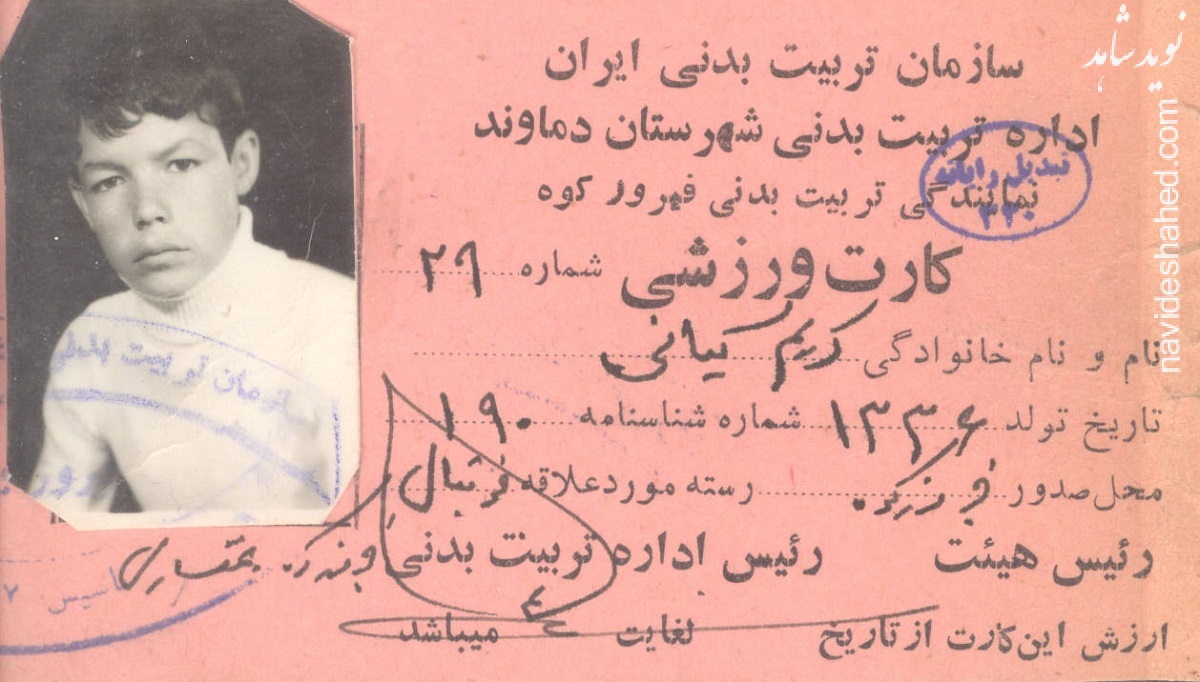 نوید شاهد
navideshahed.com
سازمان تربیت بدنی ایران
اداره تربیت بدنی شهرستان دماوند
نمایندگی تربیت بدنی فیروز کوه
تبدیل رایانه
کارت ورزشی شماره ۲۹
نام و نام خانوادگی کریم کیانی
تاریخ تولد ۱۳۳۶ شماره شناسنامه ۱۹۰
محل صدور رسته مورد علاقه فوتبال
رئیس هیئت رئیس اداره تربیت بدنی
ارزش این کارت از تاریخ لغایت میباشد
سازمان تربیت بدنی